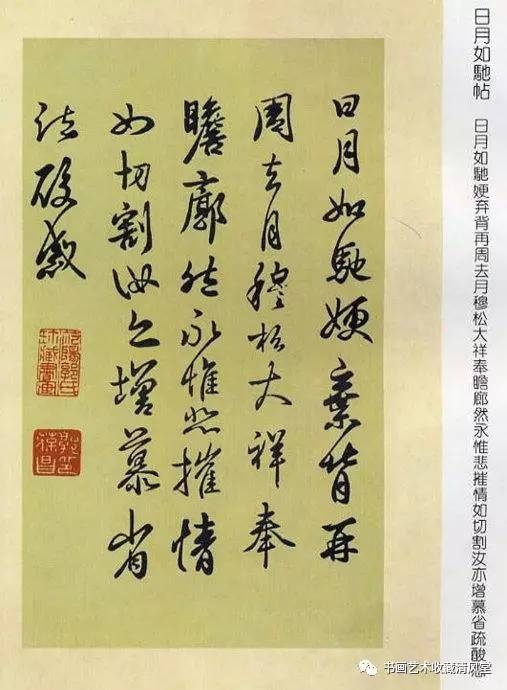 日月如馳帖
日月如馳㛐弃背再周去月穆松大祥奉瞻廊然永惟悲摧情如切割汝亦增慕省疏酸感
日月如馳㛐棄背再
周去月穆松大祥奉
瞻廓然永惟悲摧情
如切割汝亦增慕省
疏酸感
书画艺术收藏清风堂